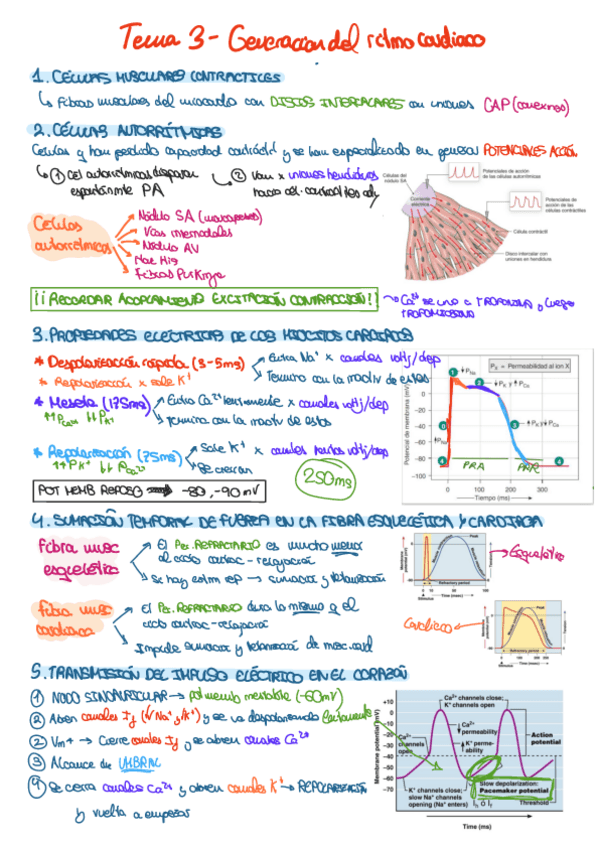 Tema 3 - Generacion del ritmo cardiaco
1. CÉLULAS MUSCULARES CONTRACTILES
↳ Fibras musculares del miocardio con DISCOS INTERCALARES con uniones GAP (conexinas)
2. CÉLULAS AUTORRÍTMICAS
Celulas q han perdido capacidad contráctil y se han especializado en generar POTENCIALES ACCIÓN
① Cel autorritmicas disparan espontánmte PA
② Van x uniones hendiduras hacia cel. contractiles ady
Células autorrítmicas
Nódulo SA (marcapasos)
Vías internodales
Nódulo AV
Haz His
Fibras Purkinje
Células del nódulo SA
Corriente eléctrica
Potenciales de acción de las células autorrítmicas
Potenciales de acción de las células contráctiles
Célula contráctil
Disco intercalar con uniones en hendidura
¡¡RECORDAR ACOPLAMIENTO EXCITACIÓN CONTRACCIÓN!!
Ca2+ se une a TROPONINA y luego TROPOMIOSINA
3. PROPIEDADES ELÉCTRICAS DE LOS MIOCITOS CARDIACOS
* Despolarización rápida (3-5ms)
Entra Na+ x canales voltj/dep
Termina con la inactiv de estos
* Repolarización x sale K+
* Meseta (175ms)
↑↑PCa2+ ↓↓PK+
Entra Ca2+ lentamente x canales voltj/dep
Termina con la inactiv de estos
* Repolarización (75ms)
↑↑PK+ ↓↓PCa2+
Sale K+ x canales lentos voltj/dep
Se cierran
250ms
POT MEMB REPOSO → -80, -90 mV
PX = Permeabilidad al ion X
Potencial de membrana (mV)
+20
0
−20
−40
−60
−80
−100
1
PNa
2
↓PK y ↑PCa
3
↑PK y ↓PCa
0
↑PNa
4
4
PRA
PRR
0 100 200 300
Tiempo (ms)
4. SUMACIÓN TEMPORAL DE FUERZA EN LA FIBRA ESQUELÉTICA Y CARDIACA
Fibra musc esquelética
El Per. REFRACTARIO es mucho menor al ciclo contrac - relajación
Si hay estim rep → sumacion y tetanización
Fibra musc cardiaca
El Per. REFRACTARIO dura lo mismo q el ciclo contrac - relajación
Impide sumacion y tetanización
Peak
Refractory period
Time (msec)
Stimulus
Esquelético
Cardiaco
Peak
Refractory period
Time (msec)
Stimulus
5. TRANSMISIÓN DEL IMPULSO ELÉCTRICO EN EL CORAZÓN
① NODO SINOAURICULAR → pot memb inestable (-60mV)
② Abren canales If y se va despolarizando lentamente
② Vm+ → Cierre canales If y se abren canales Ca2+
③ Alcance de UMBRAL
④ Se cierra canales Ca2+ y abren canales K+ → REPOLARIZACIÓN
y vuelta a empezar
Membrane potential (mV)
+10
0
−10
−20
−30
−40
−50
−60
−70
Ca2+ channels close; K+ channels open
Ca2+ channels open
↓ Ca2+ permeability
↑ K+ permeability
Action potential
Slow depolarization: Pacemaker potential
K+ channels close; slow Na+ channels opening (Na+ enters)
Ih Ó If
Threshold
Time (ms)